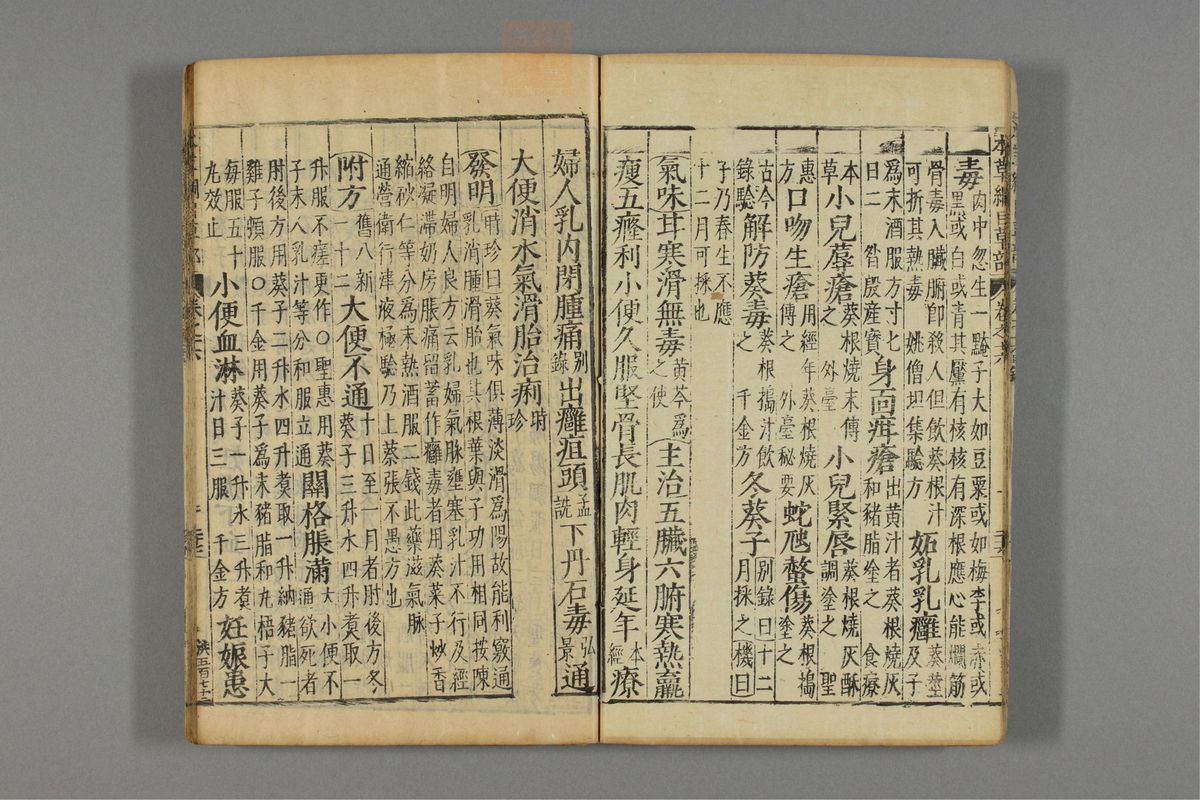 毒肉中忽生一黶子大如豆粟或如梅李或赤或黑或白或青其黶有核核有深根應心能爛筋
骨毒入臟腑即殺人但飲葵根汁可折其熱毒 姚僧坦集驗方妬乳乳癰葵莖及子
爲末酒服方寸七日二 昝殷産寶身面疳瘡出黄汁者葵根燒灰和豬脂塗之 食療
本草小兒蓐瘡葵根燒末傅之 外臺小兒緊唇葵根燒灰酥調塗之 聖
惠方口吻生瘡用經年葵根燒灰傅之 外臺秘要蛇虺螫傷葵根搗塗之
古今錄驗解防葵毒葵根搗汁飲之 千金方冬葵子別錄曰十二月採之機曰
子乃春生不應十二月可採也
氣味甘寒滑無毒黄芩爲之使主治五臟六腑寒熱羸
瘦五癃利小便久服堅骨長肌肉輕身延年本經療
婦人乳内閉腫痛別錄出癰疽頭孟詵下丹石毒弘景通
大便消水氣滑胎治痢時珍
發明時珍曰葵氣味俱薄淡滑爲陽故能利竅通乳消腫滑胎也其根葉與子功用相同按陳
自明婦人良方云乳婦氣脉壅塞乳汁不行及經絡凝滯奶房脹痛留蓄作癰毒者用葵菜子炒香
縮砂仁等分爲末熱酒服二錢此藥滋氣脉通營衛行津液極驗乃上蔡張不愚方也
附方舊八新一十二大便不通十日至一月者肘後方冬葵子三升水四升煮取一
升服不瘥更作○聖惠用葵子末人乳汁等分和服立通關格脹滿大小便不通欲死者
肘後方用葵子二升水四升煮取一升納豬脂一雞子頓服○千金用葵子爲末豬脂和丸梧子大
每服五十丸效止小便血淋葵子一升水三升煮汁日三服 千金方妊娠患